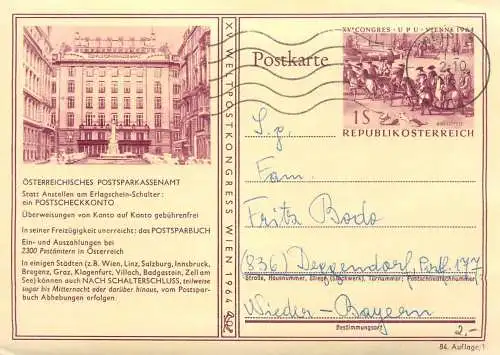 XV. WELTPOSTKONGRESS WIEN 1964
ÖSTERREICHISCHES POSTSPARKASSENAMT
Statt Anstellen am Erlagschein-Schalter:
ein POSTSCHECKKONTO
Überweisungen von Konto auf Konto gebührenfrei
In seiner Freizügigkeit unerreicht: das POSTSPARBUCH
Ein- und Auszahlungen bei
2300 Postämtern in Österreich
In einigen Städten (z.B. Wien, Linz, Salzburg, Innsbruck,
Bregenz, Graz, Klagenfurt, Villach, Badgastein, Zell am
See) können auch NACH SCHALTERSCHLUSS, teilweise
sogar bis Mitternacht oder darüber hinaus, vom Postspar-
buch Abhebungen erfolgen.
Postkarte
XV. CONGRÈS · UPU · VIENNE 1964
1S
REPUBLIK ÖSTERREICH
S.g.
Fam.
Fritz Bodo
(836) Deggendorf, Postf. 177
Straße, Hausnummer, Stiege (Stockwerk), Türnummer; Postschließfachnummer
Nieder-Bayern
Bestimmungsort
2,-
84. Auflage/1